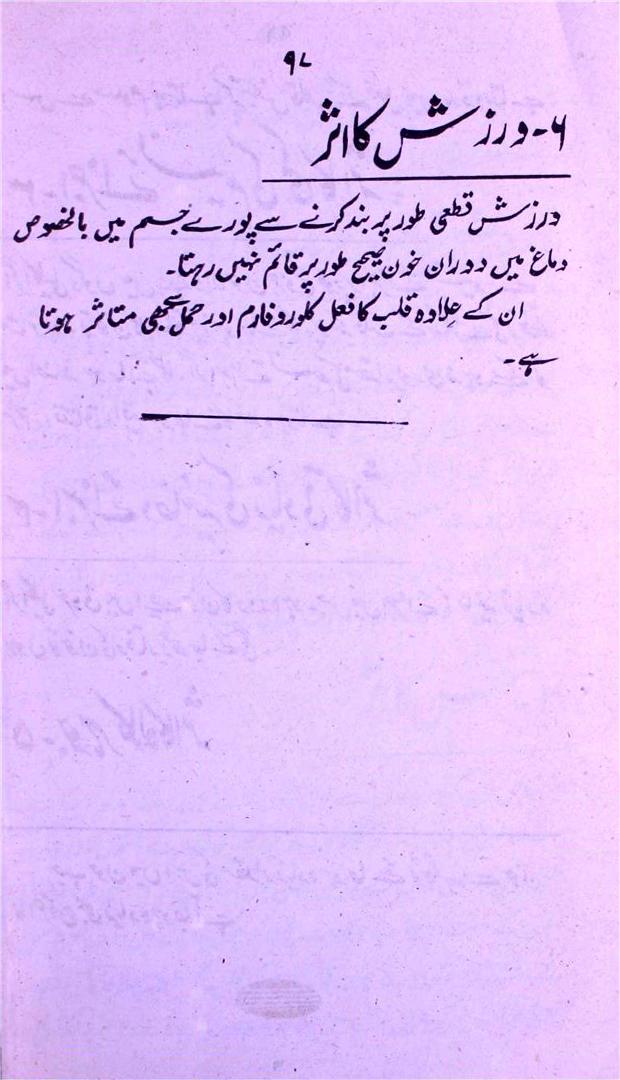 ۹۷
۶- ورزش کا اثر
ورزش قطعی طور پر بند کرنے سے پورے جسم میں بالخصوص
دماغ میں دوران خون صحیح طور پر قائم نہیں رہتا۔
ان کے علاوہ قلب کا فعل کلوروفارم اور حمل سے بھی متاثر ہوتا
ہے۔